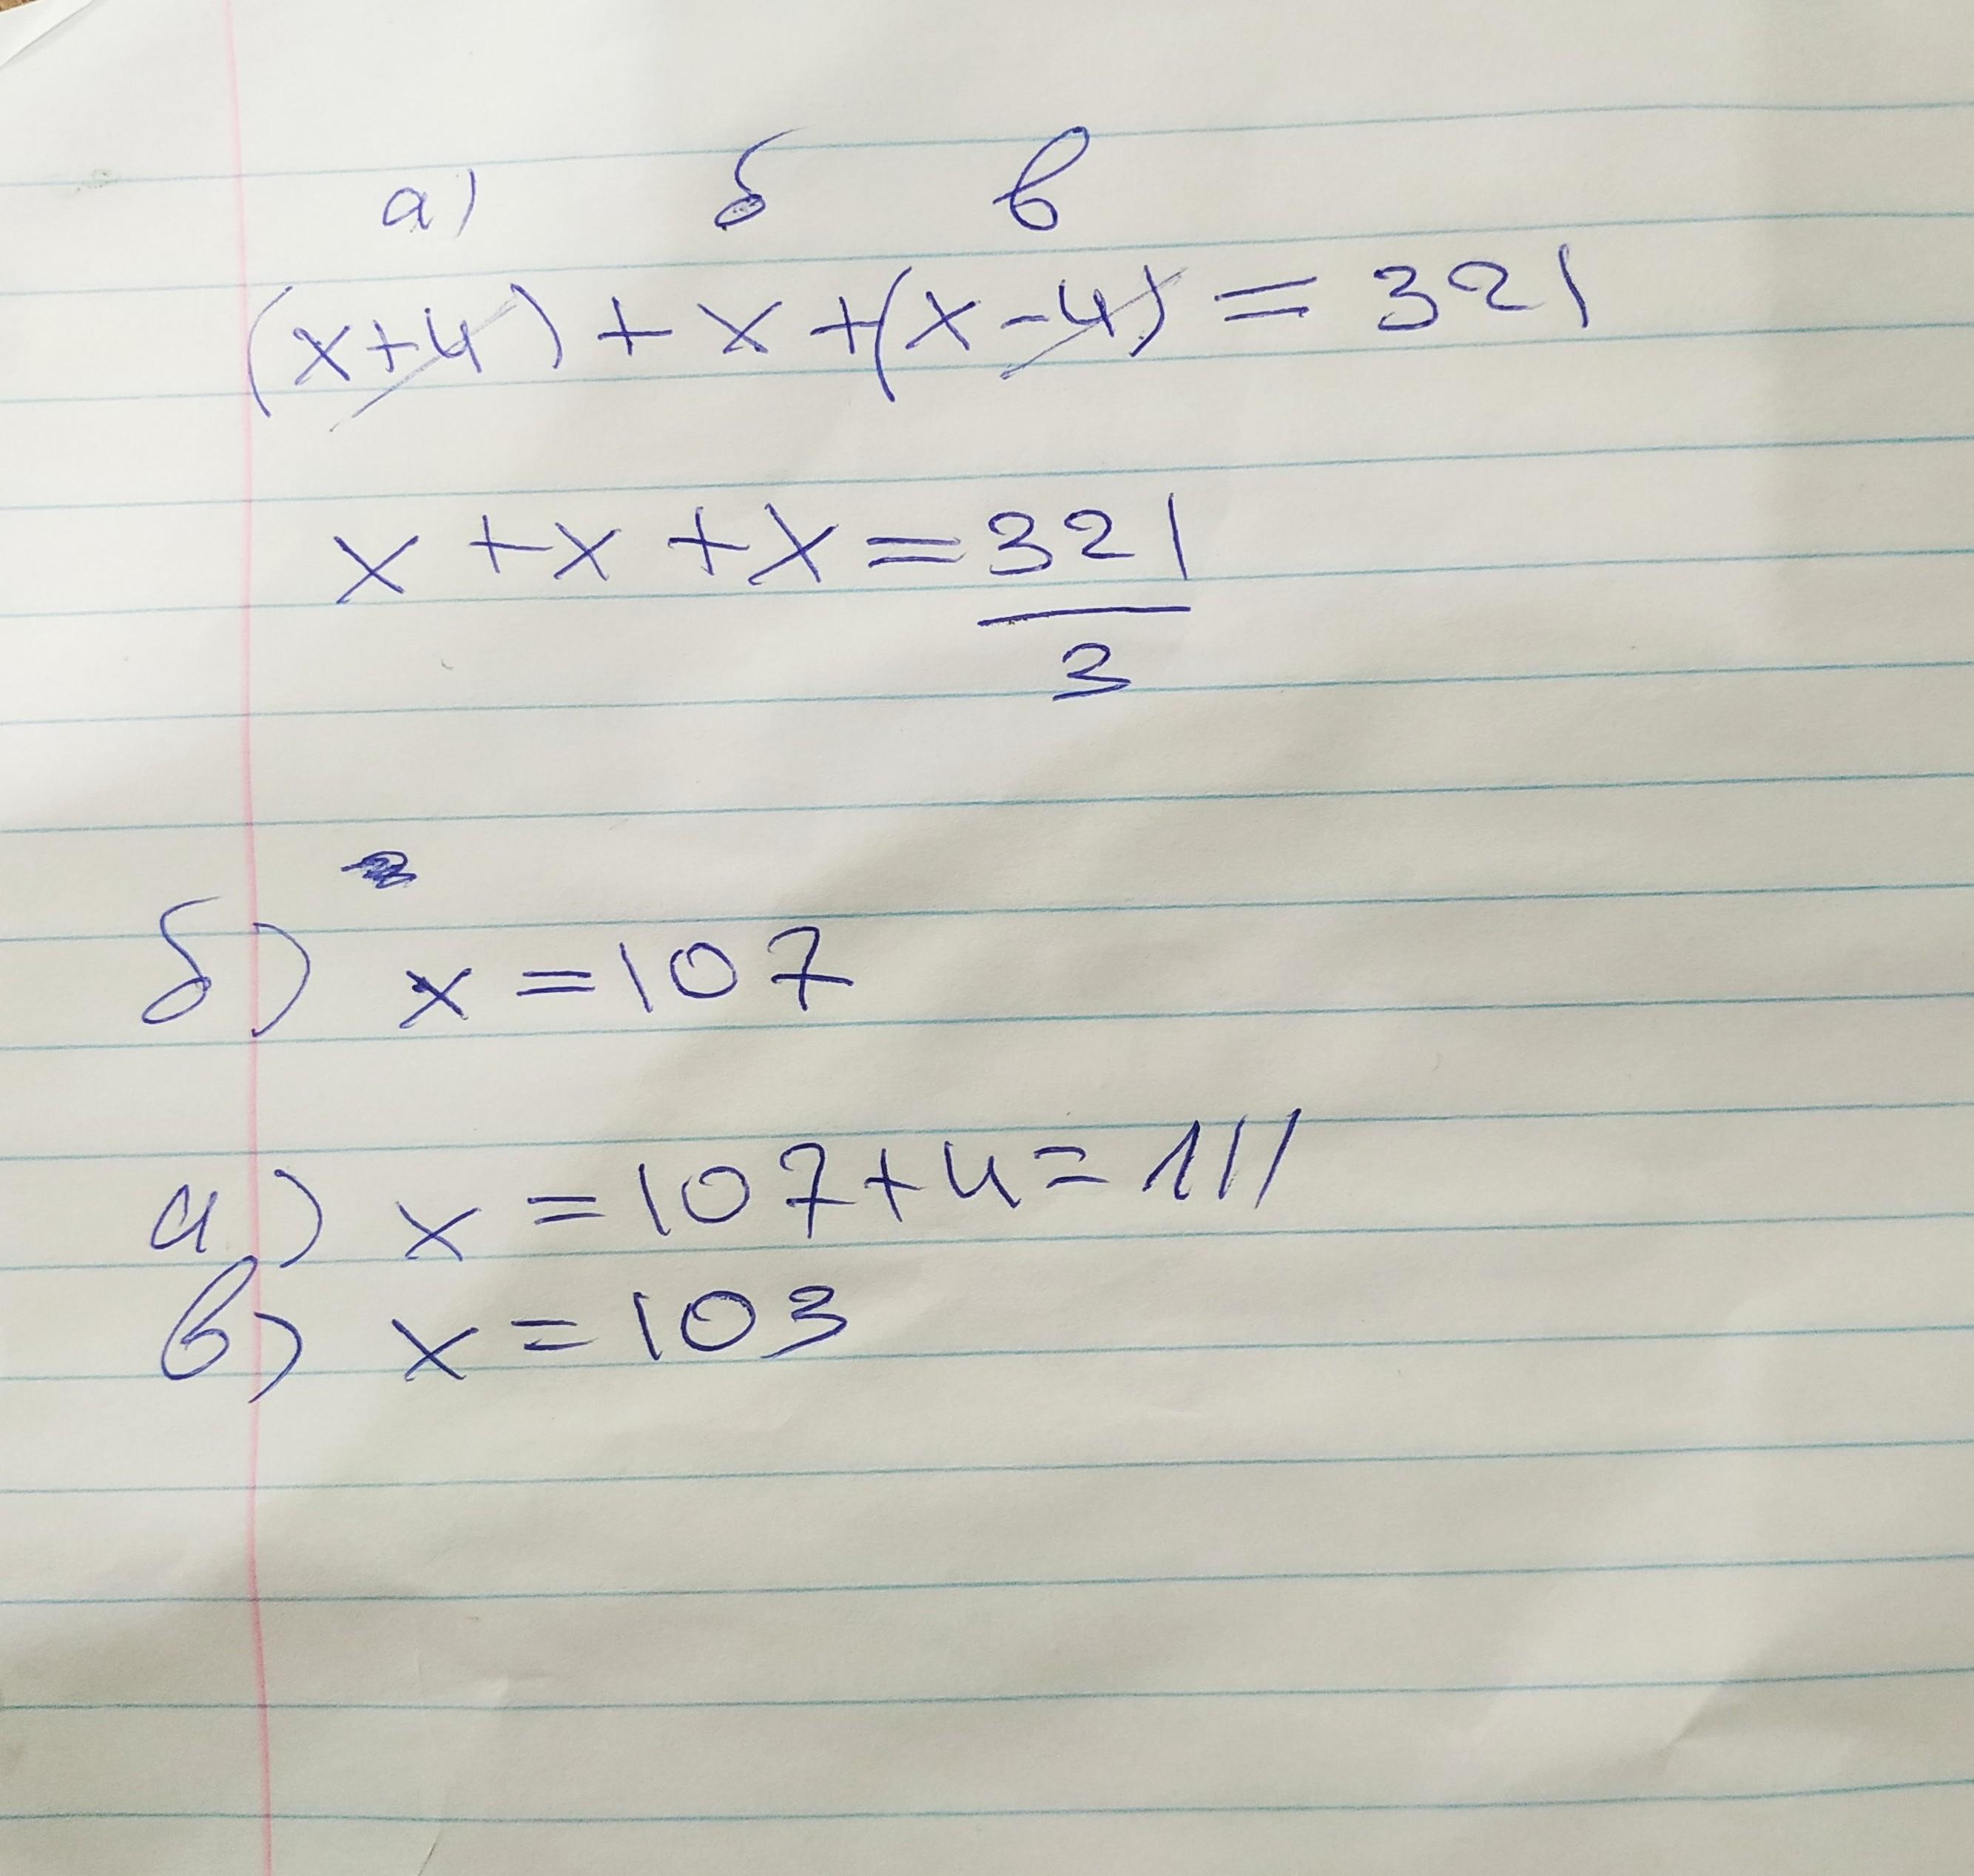 а) б в
(x+4)+x+(x-4)=321
x+x+x=321
3
б) x=107
а) x=107+4=111
в) x=103